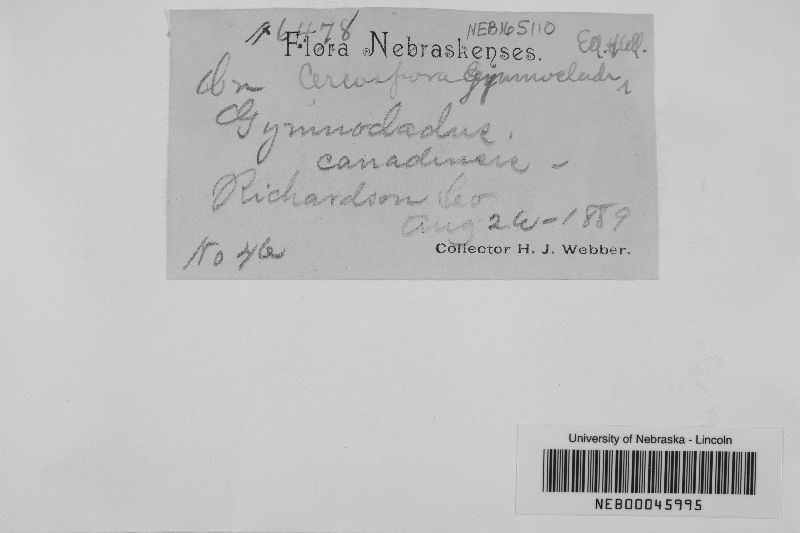 16478 NEB165110
Flora Nebraskenses. Ell. & Kell.
Cercospora Gymnocladi
On
Gymnocladus.
canadensis -
Richardson Co
Aug 26-1889
No 46
Collector H. J. Webber.
University of Nebraska - Lincoln
NEB00045995